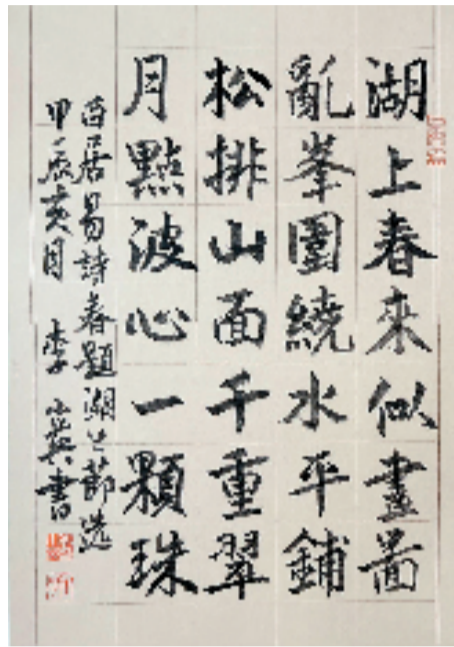 湖上春來似畫啚
亂峯圍繞水平鋪
松排山面千重翠
月點波心一顆珠
白居易詩春題湖上節选
甲辰亥月 李小英書